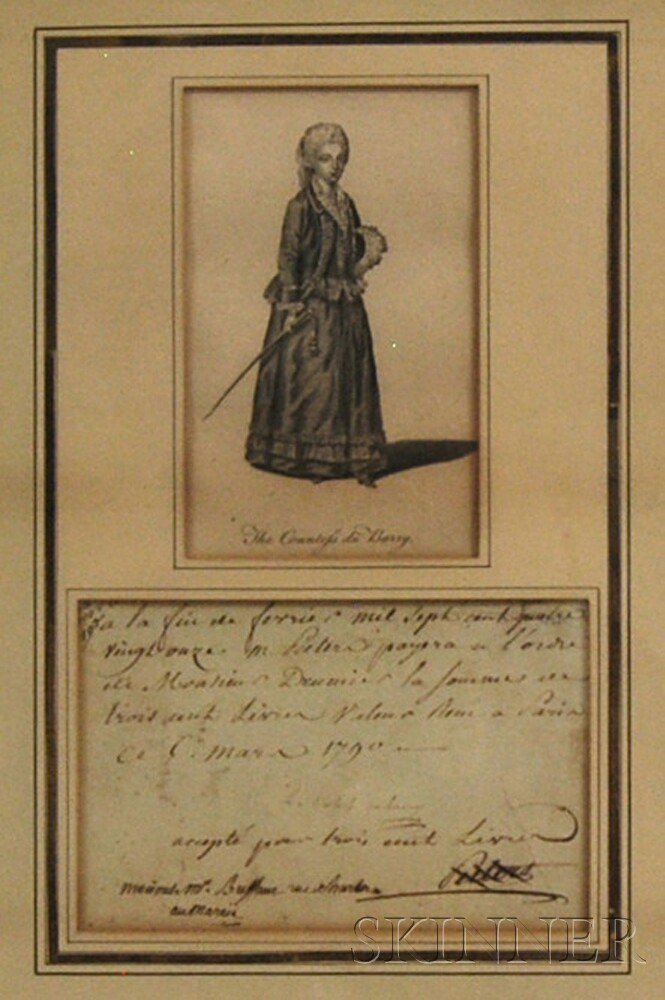 The Countess du Barry.
à la fin de fevrier mil sept cent quatre
vingt onze M payera a l'ordre
de Monsieur la somme de
trois cent Livres Valeur a Paris
ce Mars 1790
accepté pour trois cent Livres
Mr. Buffault rue
au Marais
SKINNER